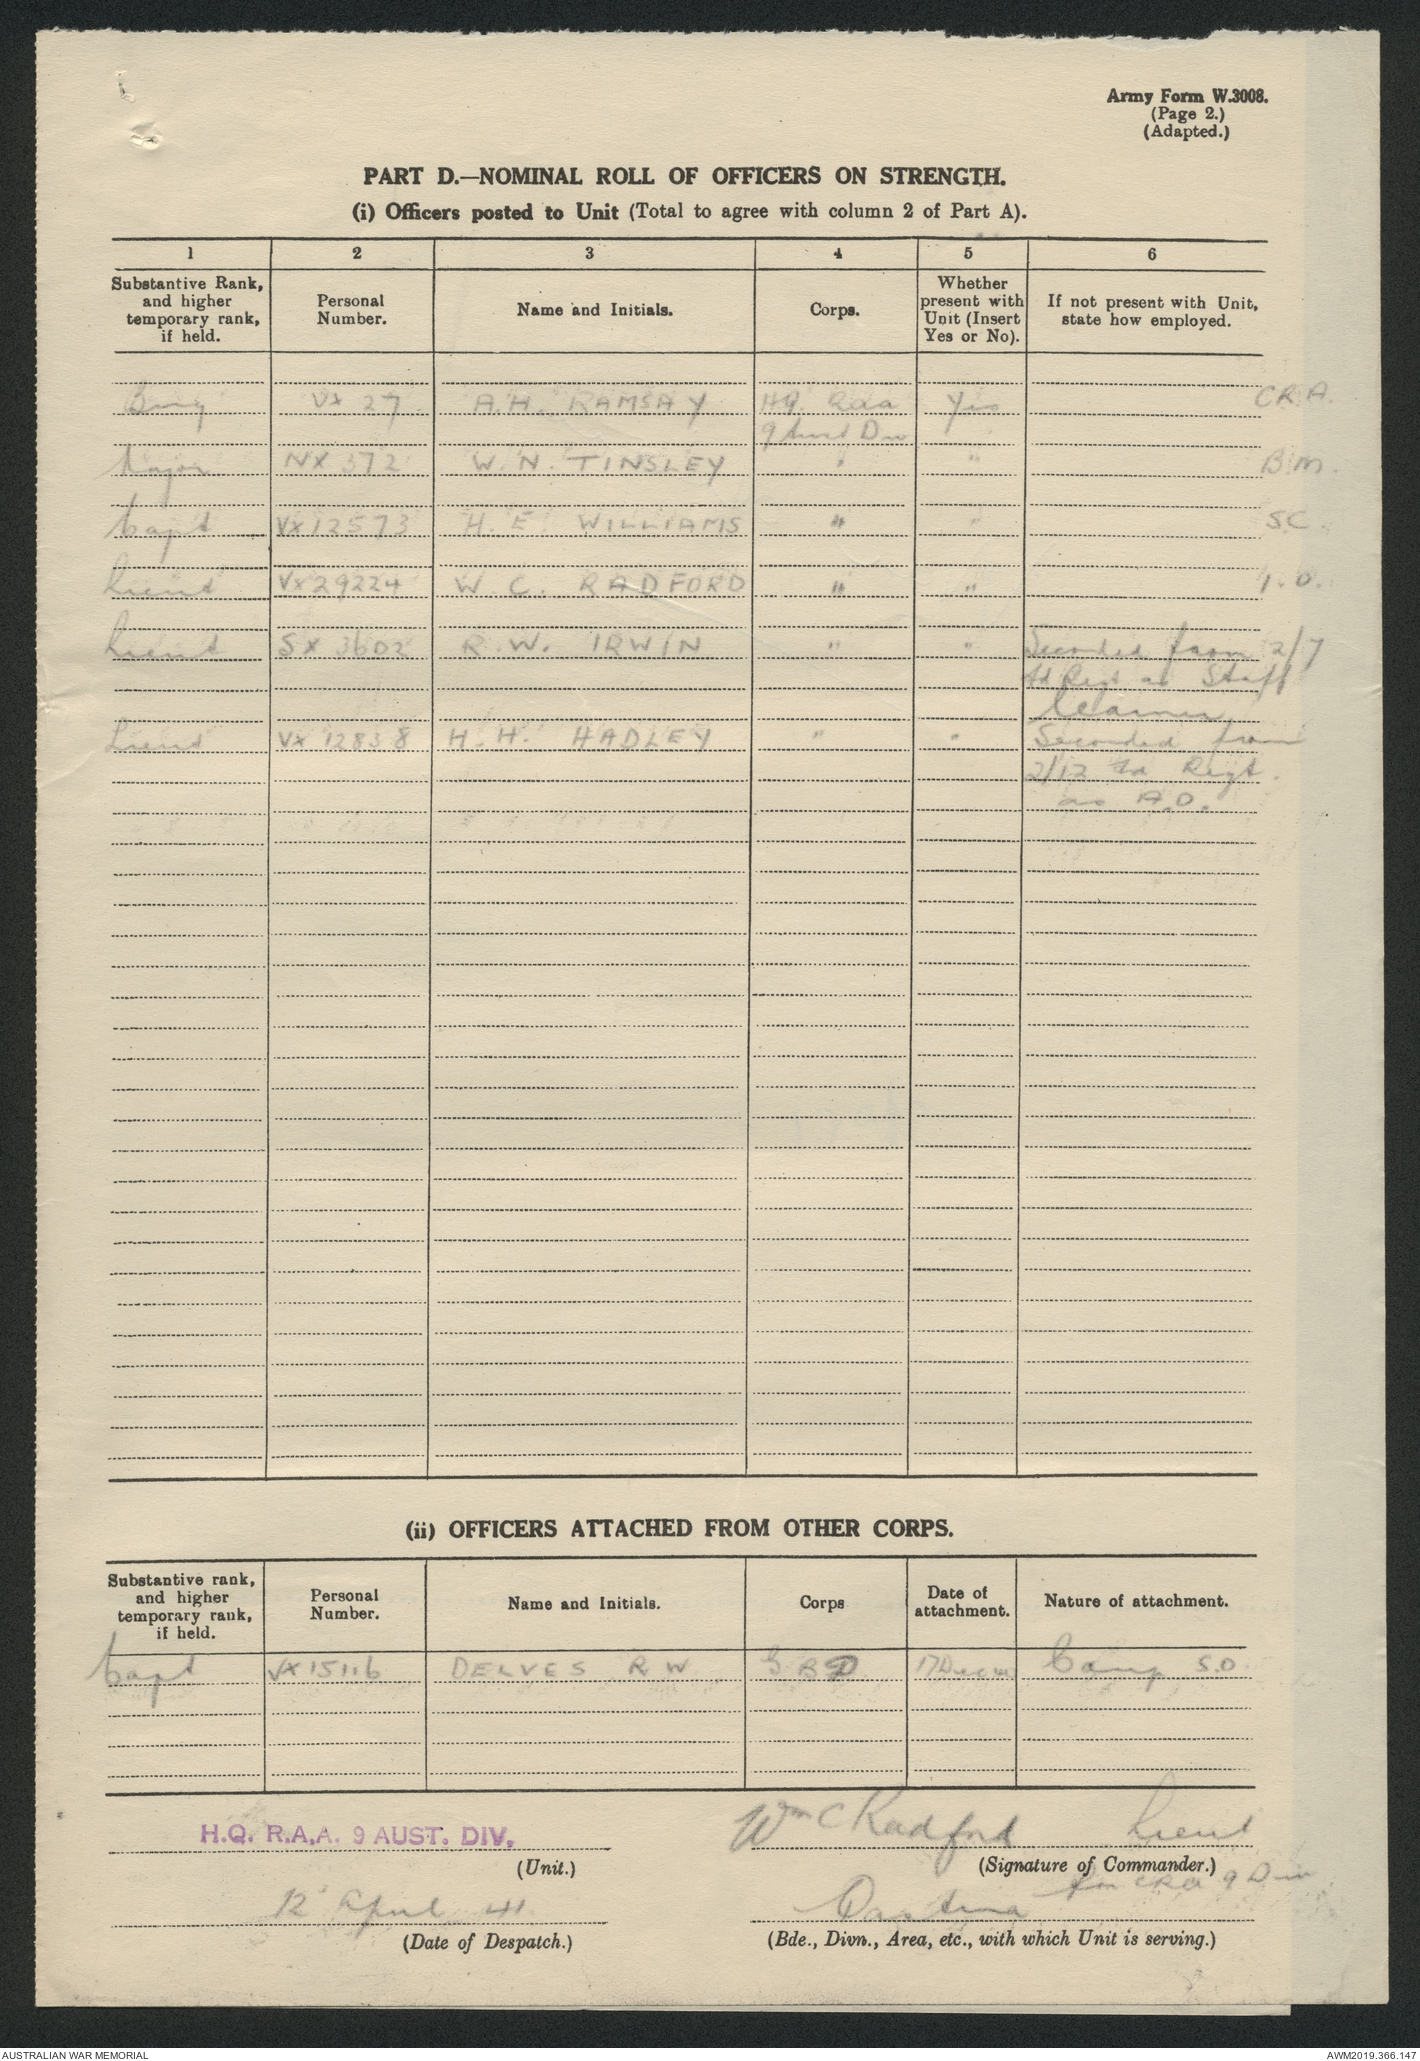 Army Form W.3008.
(Page 2.)
(Adapted.)
PART D.—NOMINAL ROLL OF OFFICERS ON STRENGTH.
(i) Officers posted to Unit (Total to agree with column 2 of Part A).
1 2 3 4 5 6
Substantive Rank, and higher temporary rank, if held. Personal Number. Name and Initials. Corps. Whether present with Unit (Insert Yes or No). If not present with Unit, state how employed.
Brig VX 27 A.H. RAMSAY HQ. RAA Yes CRA.
9 Aust Div
Major NX 372 W. N. TINSLEY " " B.M.
Capt VX12573 H. E. WILLIAMS " " S.C.
Lieut VX29224 W. C. RADFORD " " I.O.
Lieut SX 3602 R.W. IRWIN " " Seconded from 2/7
Fd Regt as Staff
Learner
Lieut VX 12838 H. H. HADLEY " " Seconded from
2/12 Fd Regt.
as A.D.
(ii) OFFICERS ATTACHED FROM OTHER CORPS.
Substantive rank, and higher temporary rank, if held. Personal Number. Name and Initials. Corps Date of attachment. Nature of attachment.
Capt VX15116 DELVES R W 17 Dec Camp S.O.
H.Q. R.A.A. 9 AUST. DIV. Wm C Radford Lieut
(Unit.) (Signature of Commander.)
for CRA 9 Div
12 April 41
(Date of Despatch.) (Bde., Divn., Area, etc., with which Unit is serving.)
AUSTRALIAN WAR MEMORIAL AWM2019.366.147